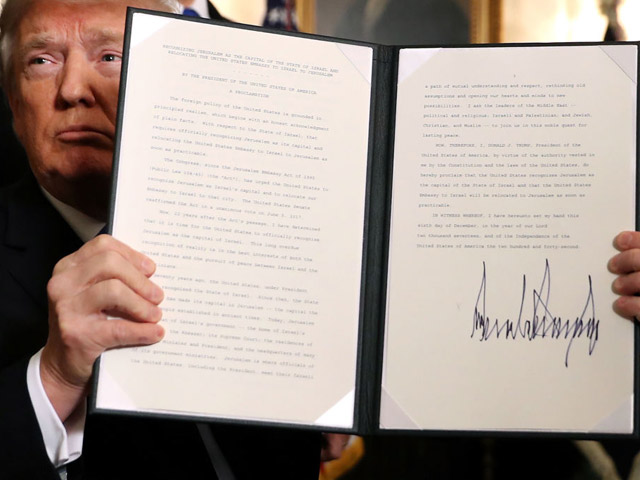 RECOGNIZING JERUSALEM AS THE CAPITAL OF THE STATE OF ISRAEL AND
RELOCATING THE UNITED STATES EMBASSY TO ISRAEL TO JERUSALEM
BY THE PRESIDENT OF THE UNITED STATES OF AMERICA
A PROCLAMATION
The foreign policy of the United States is grounded in
principled realism, which begins with an honest acknowledgment
of plain facts. With respect to the State of Israel, that
requires officially recognizing Jerusalem as its capital and
relocating the United States Embassy to Israel to Jerusalem as
soon as practicable.
The Congress, since the Jerusalem Embassy Act of 1995
(Public Law 104-45) (the "Act"), has urged the United States to
recognize Jerusalem as Israel's capital and to relocate our
Embassy to Israel to that city. The United States Senate
reaffirmed the Act in a unanimous vote on June 5, 2017.
Now, 22 years after the Act's passage, I have determined
that it is time for the United States to officially recognize
Jerusalem as the capital of Israel. This long overdue
recognition of reality is in the best interests of both the
United States and the pursuit of peace between Israel and the
Seventy years ago, the United States, under President
recognized the State of Israel. Since then, the State
has made its capital in Jerusalem -- the capital the
people established in ancient times. Today, Jerusalem
of Israel's government -- the home of Israel's
the Knesset; its Supreme Court; the residences of
Minister and President; and the headquarters of many
of its government ministries. Jerusalem is where officials of
the United States, including the President, meet their Israeli
a path of mutual understanding and respect, rethinking old
assumptions and opening our hearts and minds to new
possibilities. I ask the leaders of the Middle East --
political and religious; Israeli and Palestinian; and Jewish,
Christian, and Muslim -- to join us in this noble quest for
lasting peace.
NOW, THEREFORE, I, DONALD J. TRUMP, President of the
United States of America, by virtue of the authority vested in
me by the Constitution and the laws of the United States, do
hereby proclaim that the United States recognizes Jerusalem as
the capital of the State of Israel and that the United States
Embassy to Israel will be relocated to Jerusalem as soon as
practicable.
IN WITNESS WHEREOF, I have hereunto set my hand this
sixth day of December, in the year of our Lord
two thousand seventeen, and of the Independence of the
United States of America the two hundred and forty-second.